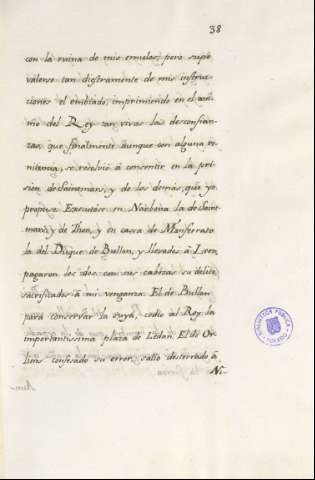 38
con la ruina de mis emulos; pero supo
valerse tan diestramente de mis instruc
ciones el embiado, imprimiendo en el ani
mo del Rey tan vivas las desconfian
zas, que finalmente aunque con alguna re
nitencia, se resolvió à consentir en la pri
sion de Saintmars, y de los demàs, que yo
propuse. Executóse en Narbona la de Saint
mars, y de Thou, y en casa de Monferrato
la del Duque de Bullon, y llevados à Leon,
pagaron los dos con sus cabezas su delito,
sacrificados à mi venganza. El de Bullon
para conservar la suya, cedio al Rey la
importantissima plaza de Sedan. El de Or
liens confesado su error, salio desterrado à
Ni-
BIBLIOTECA PUBLICA
TOLEDO